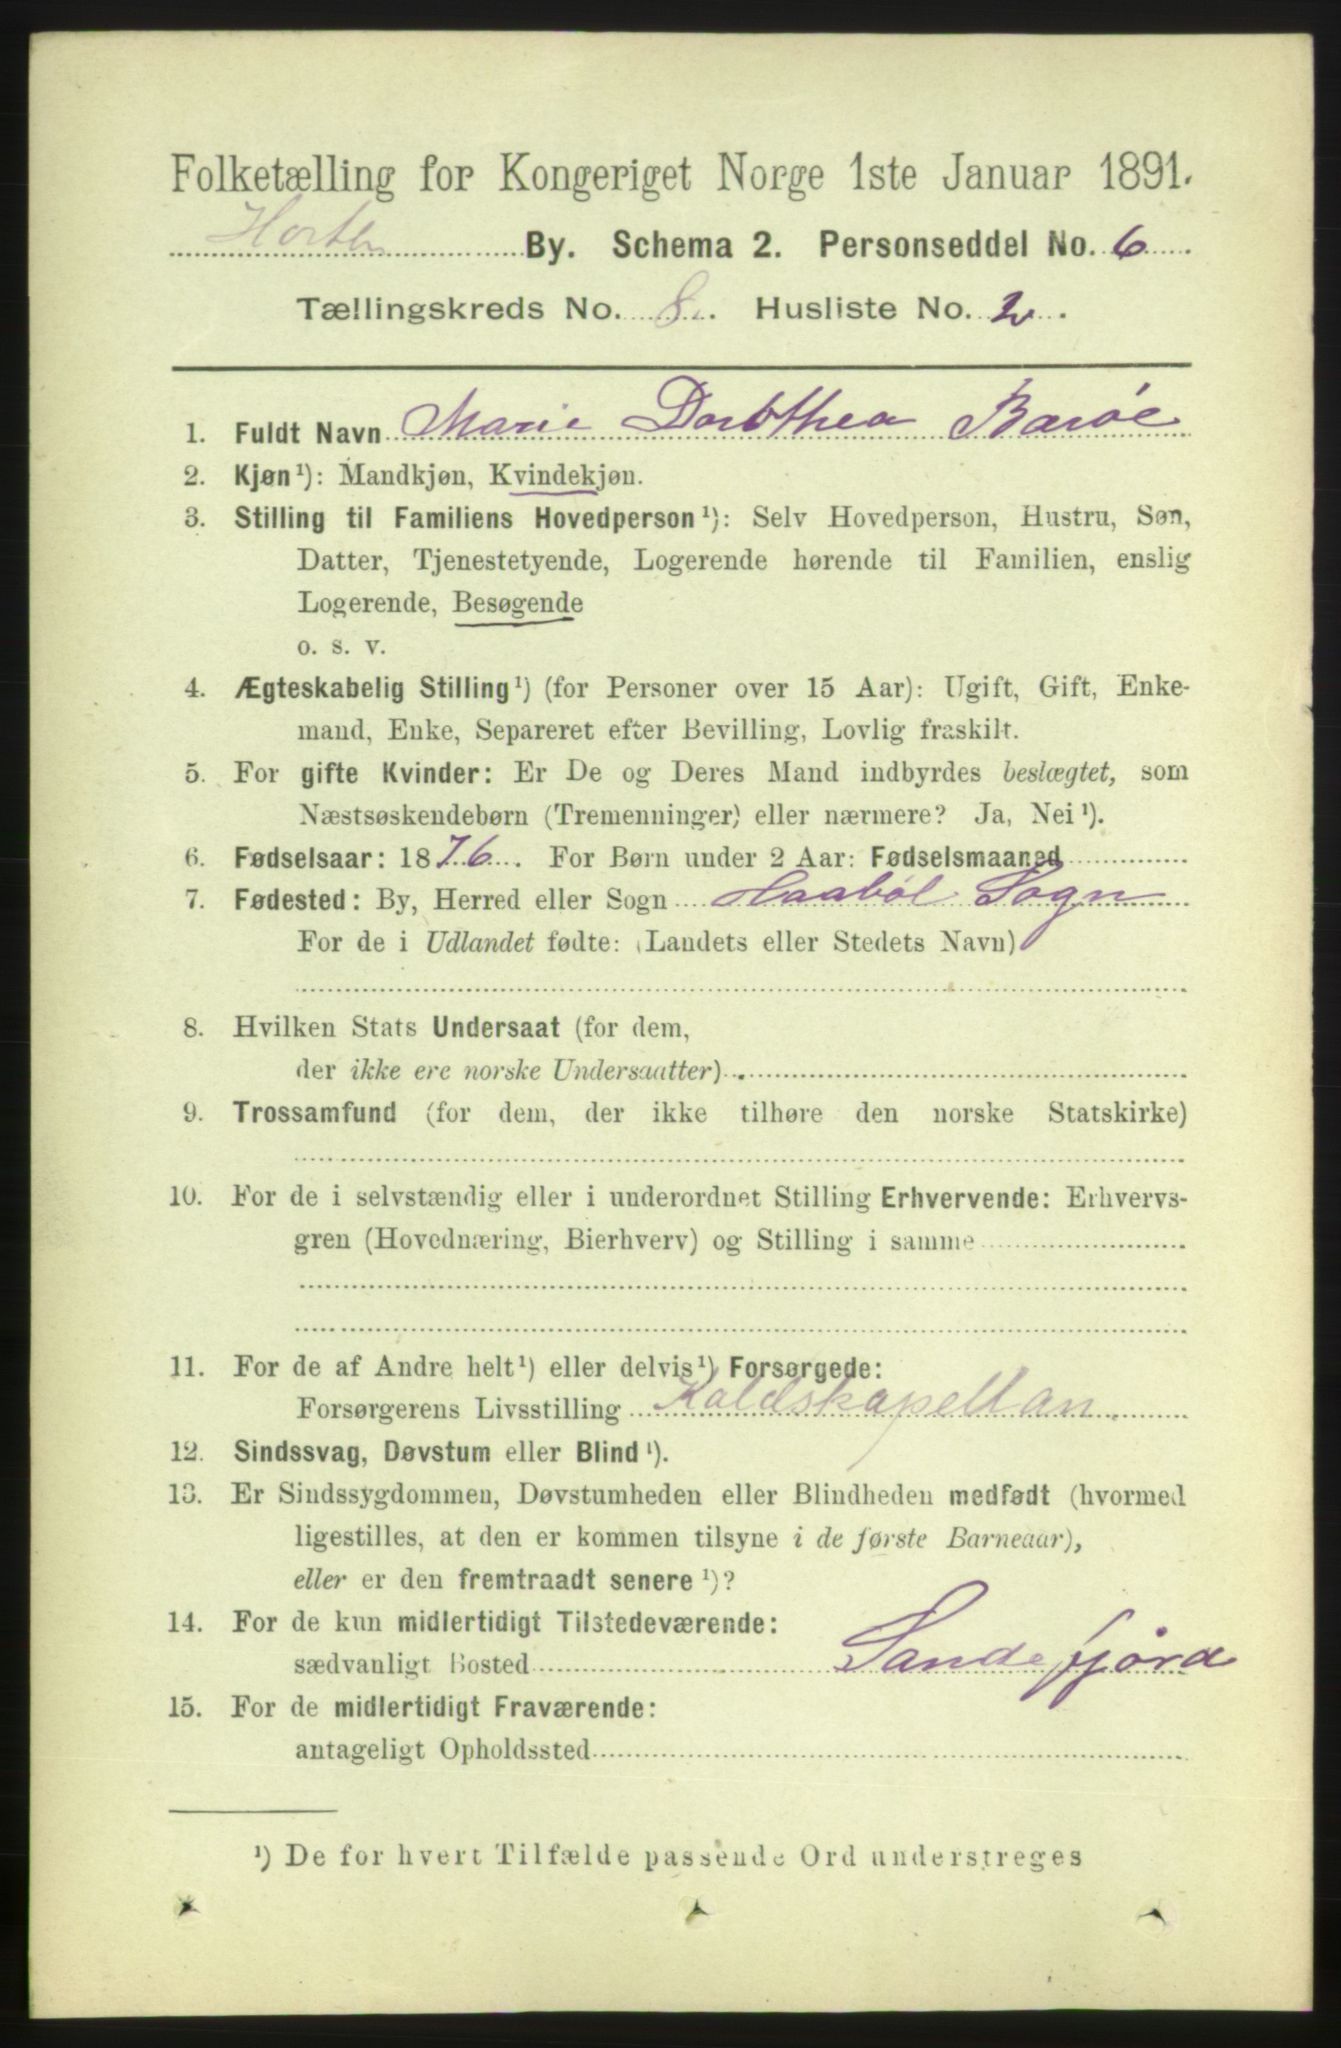 Folketælling for Kongeriget Norge 1ste Januar 1891.
Horten By. Schema 2. Personseddel No. 6
Tællingskreds No. 8. Husliste No. 2.
1. Fuldt Navn Marie Dorothea Barøe
2. Kjøn¹): Mandkjøn, Kvindekjøn.
3. Stilling til Familiens Hovedperson¹): Selv Hovedperson, Hustru, Søn,
Datter, Tjenestetyende, Logerende hørende til Familien, enslig
Logerende, Besøgende
o. s. v.
4. Ægteskabelig Stilling¹) (for Personer over 15 Aar): Ugift, Gift, Enke-
mand, Enke, Separeret efter Bevilling, Lovlig fraskilt.
5. For gifte Kvinder: Er De og Deres Mand indbyrdes beslægtet, som
Næstsøskendebørn (Tremenninger) eller nærmere? Ja, Nei¹).
6. Fødselsaar: 1876. For Børn under 2 Aar: Fødselsmaaned
7. Fødested: By, Herred eller Sogn Haabøl Sogn
For de i Udlandet fødte: (Landets eller Stedets Navn)
8. Hvilken Stats Undersaat (for dem,
der ikke ere norske Undersaatter)
9. Trossamfund (for dem, der ikke tilhøre den norske Statskirke)
10. For de i selvstændig eller i underordnet Stilling Erhvervende: Erhvervs-
gren (Hovednæring, Bierhverv) og Stilling i samme
11. For de af Andre helt¹) eller delvis¹) Forsørgede:
Forsørgerens Livsstilling Kaldskapellan.
12. Sindssvag, Døvstum eller Blind¹).
13. Er Sindssygdommen, Døvstumheden eller Blindheden medfødt (hvormed
ligestilles, at den er kommen tilsyne i de første Barneaar),
eller er den fremtraadt senere¹)?
14. For de kun midlertidigt Tilstedeværende:
sædvanligt Bosted Sandefjörd
15. For de midlertidigt Fraværende:
antageligt Opholdssted
¹) De for hvert Tilfælde passende Ord understreges